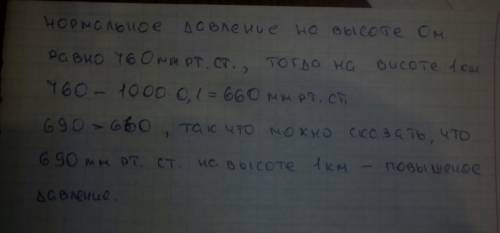 нормальное давление на высоте 0м
равно 760 мм рт. ст., тогда на висоте 1км
760 - 1000 0,1 = 660 мм рт. ст.
690 > 660, так что можно сказать, что
690 мм рт. ст. на высоте 1 км - повышеное
давление.